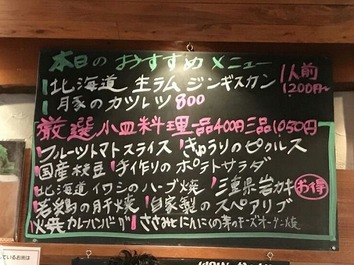 本日のおすすめメニュー
北海道 生ラム ジンギスカン 1人前 1,200円〜
豚のカツレツ 800
厳選小皿料理 一品400円 三品1050円
フルーツトマトスライス きゅうりのピクルス
国産枝豆 手作りのポテトサラダ
北海道イワシのハーブ焼 三重県岩カキ お得
若鶏の 干焼 自家製のスペアリブ
焼カレーハンバーグ ささみとにんにくの芽のチーズオーブン焼